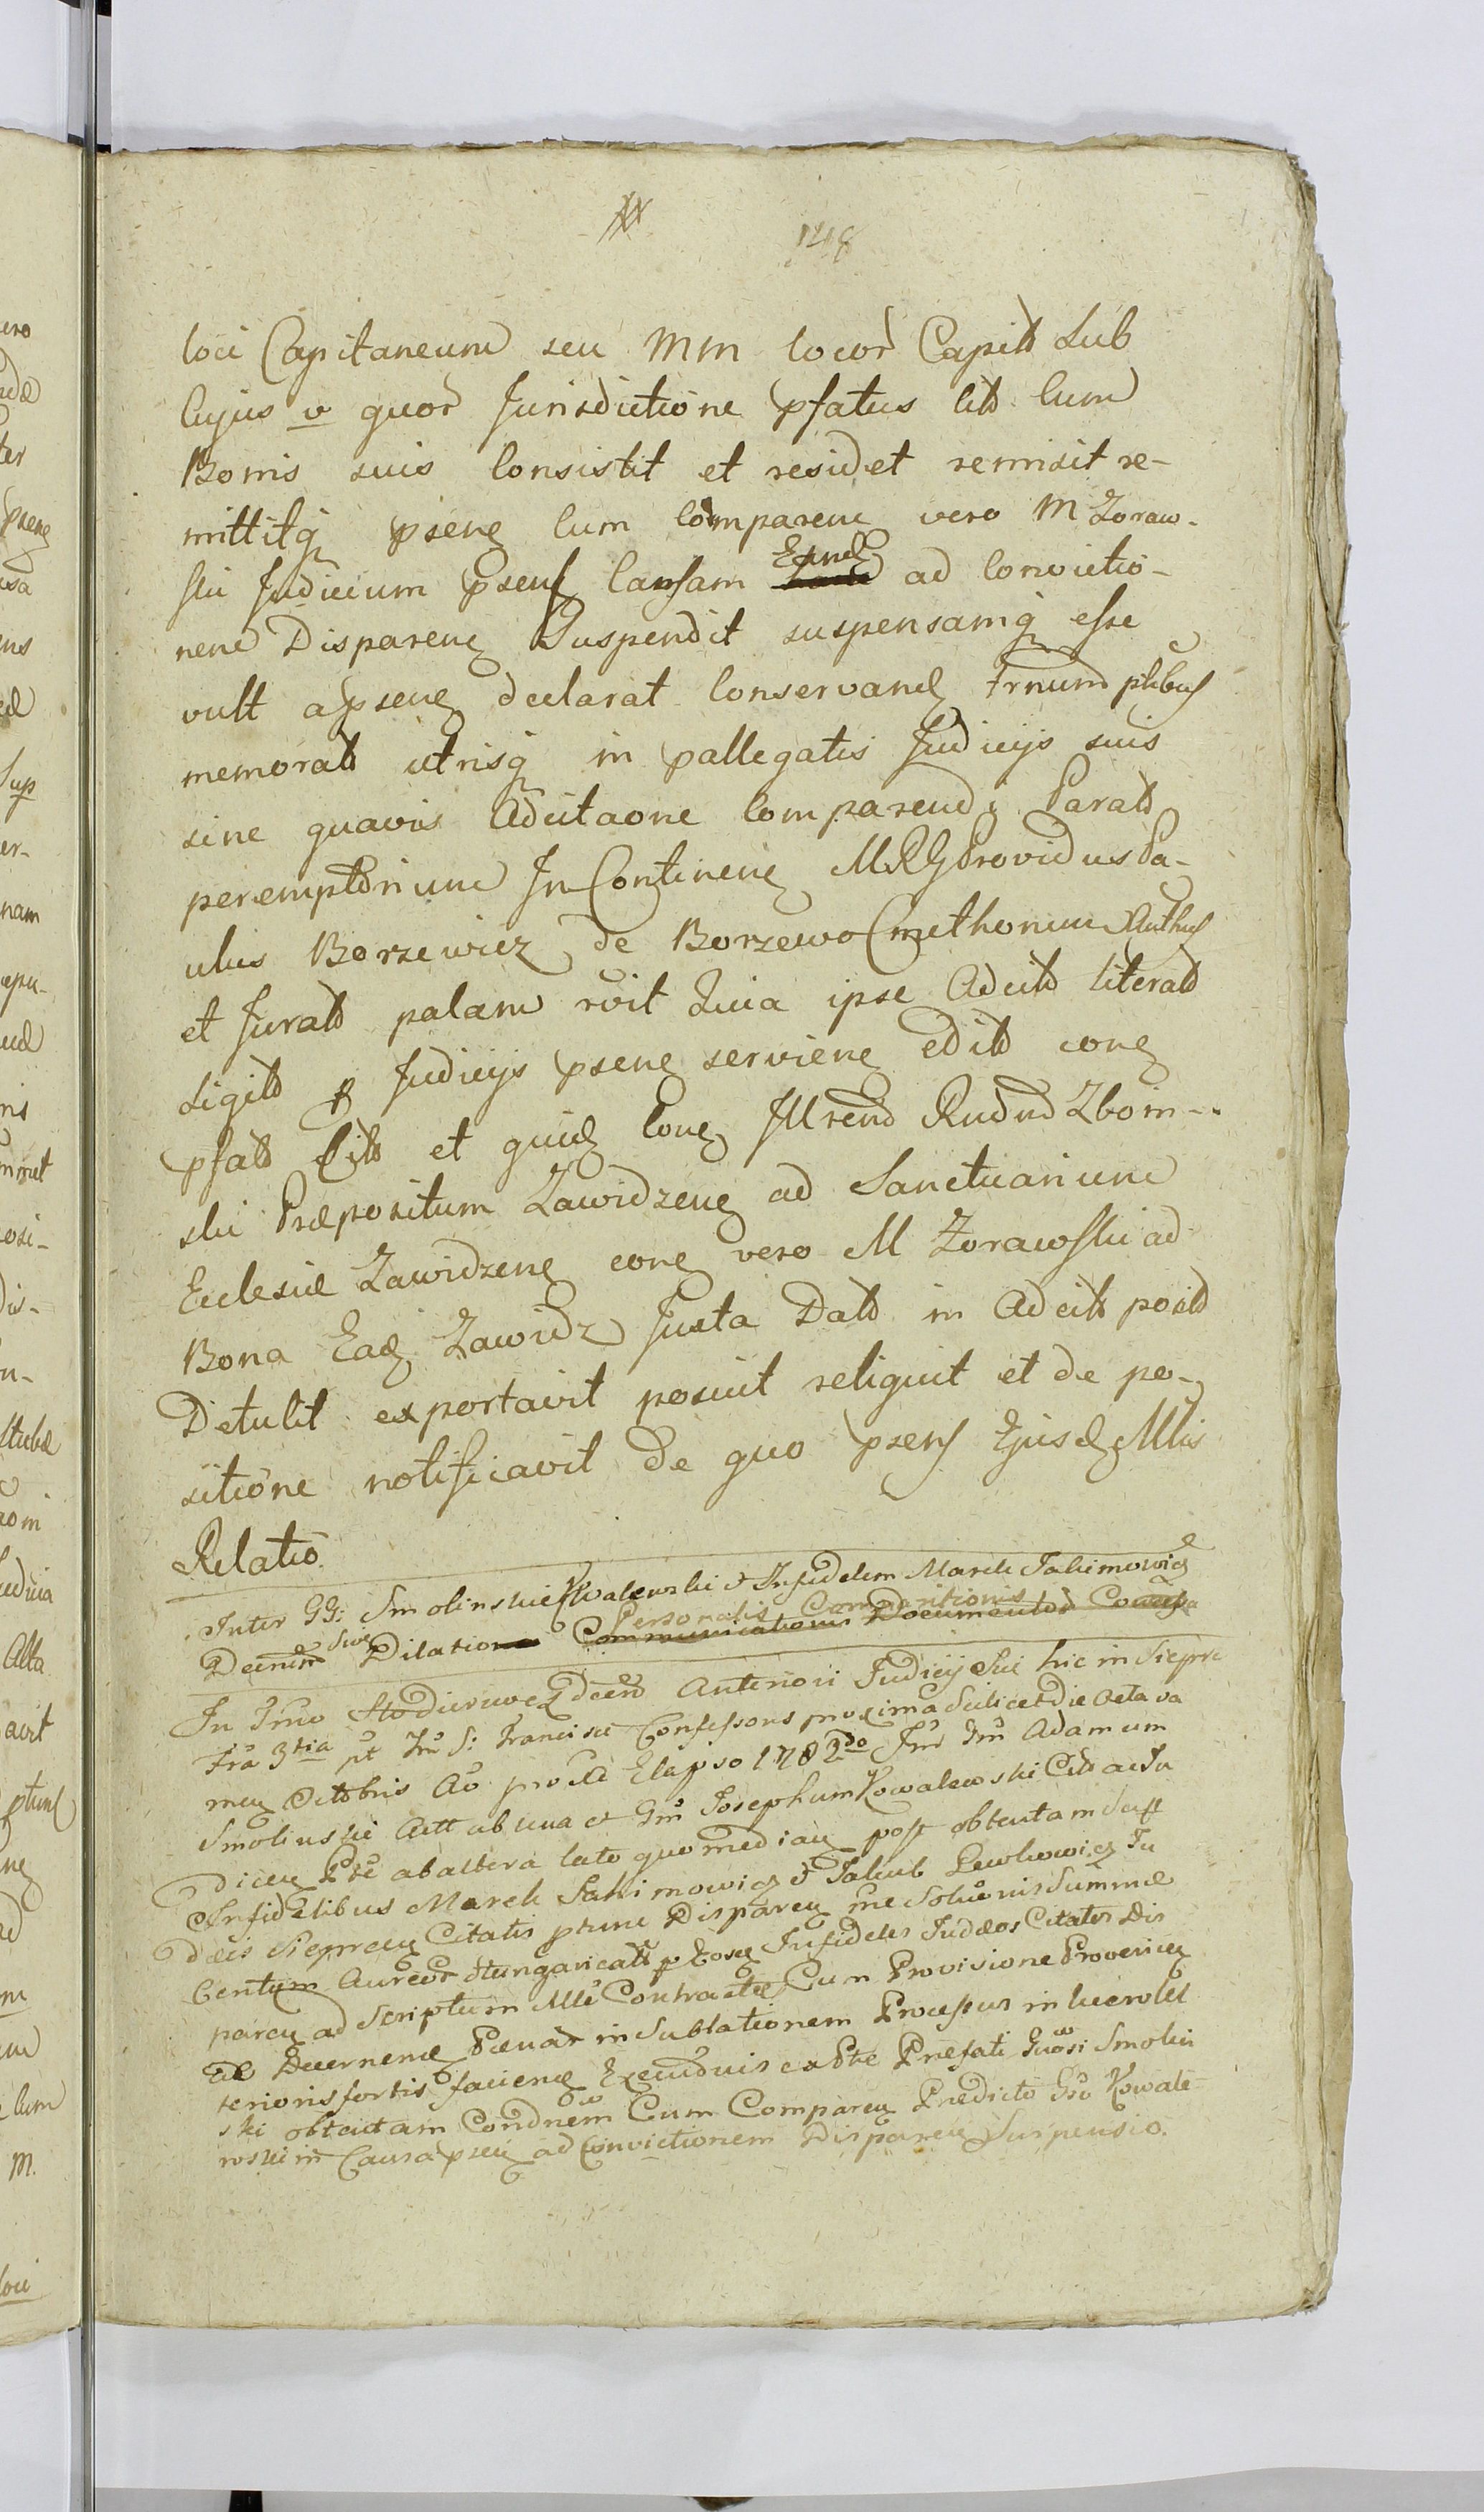 148
loci Capitaneum seu MM locor Capit Sub
Cujus v quor Jurisdictione pfatus Cit Cum
Bonis suis Consistit et residet remisit re-
mittitq psene Cum Comparene vero M Zoraw-
ski Judicium psens Causam Eand ad Convictio-
nem Disparene Suspendit suspensamq esse
vult apsene declarat Conservand Trnum ptibus
memorat utrisq in pallegatis Judicijs suis
sine quavis Adcitaone Comparendi Parat
peremptorium In Continene MRG Providus Pa-
ulus Borzewicz de Borzewo Cmethonum Authus
et Jurat palam rvit Quia ipse Adcit literat
Sigilt p Judicijs psene serviene edit cone
pfat Cit et quid Cone Illrend Rudnd Zboin-
ski Præpositum Zawidzene ad Sanctuarium
Ecclesiæ Zawidzene cone vero M Zorawski ad
Bona Ead Zawidz Juxta Dat in Adcit posit
Detulit exportavit posuit reliquit et de po-
sitione notificavit de quo psens Ejusd Mlis
Relatio
Inter GG: Smolinski Kowalewski & Infidelem Marek Jakimowicz
Personalis Comparitionis
Decretum sive Dilationa Communicationis Documentor Concessa
In Trno Hodierno ex decreto Anteriori Judicij Sui hic in Sieprc
Fra 3tia pt Fm S: Francisci Confessoris proxima Scilicet die Octava
mens Octobris Ao proxe Elapso 1782do Inr Gm Adamum
Smolinski Actt ab una et Gm Josephum Kowalewski Cit ac Ju
dicen Pte ab altera lato quo mediane post obtentam Sup
Infidelibus Marek Jakimowicz & Jakub Lewkowicz Ju
dæis Sieprcen Citatis ptunc Disparen rne Solutionis Summæ
Centum Aureor Hungaricalt p Eosd Infideles Judæos Citatos Dis
paren ad Scriptum Mlle Contractæ Cum Provisione Provenien
Ac Decernene Pænar in Sublationem Processus in lucro let
terioris fortis faciene Exeundvis ex Pte Præfati Gnosi Smolin
ski obtentam Condnem Cum Comparen Prædicto Gso Kowale-
wski in Causa psen ad Convictionem Disparen Suspensio.